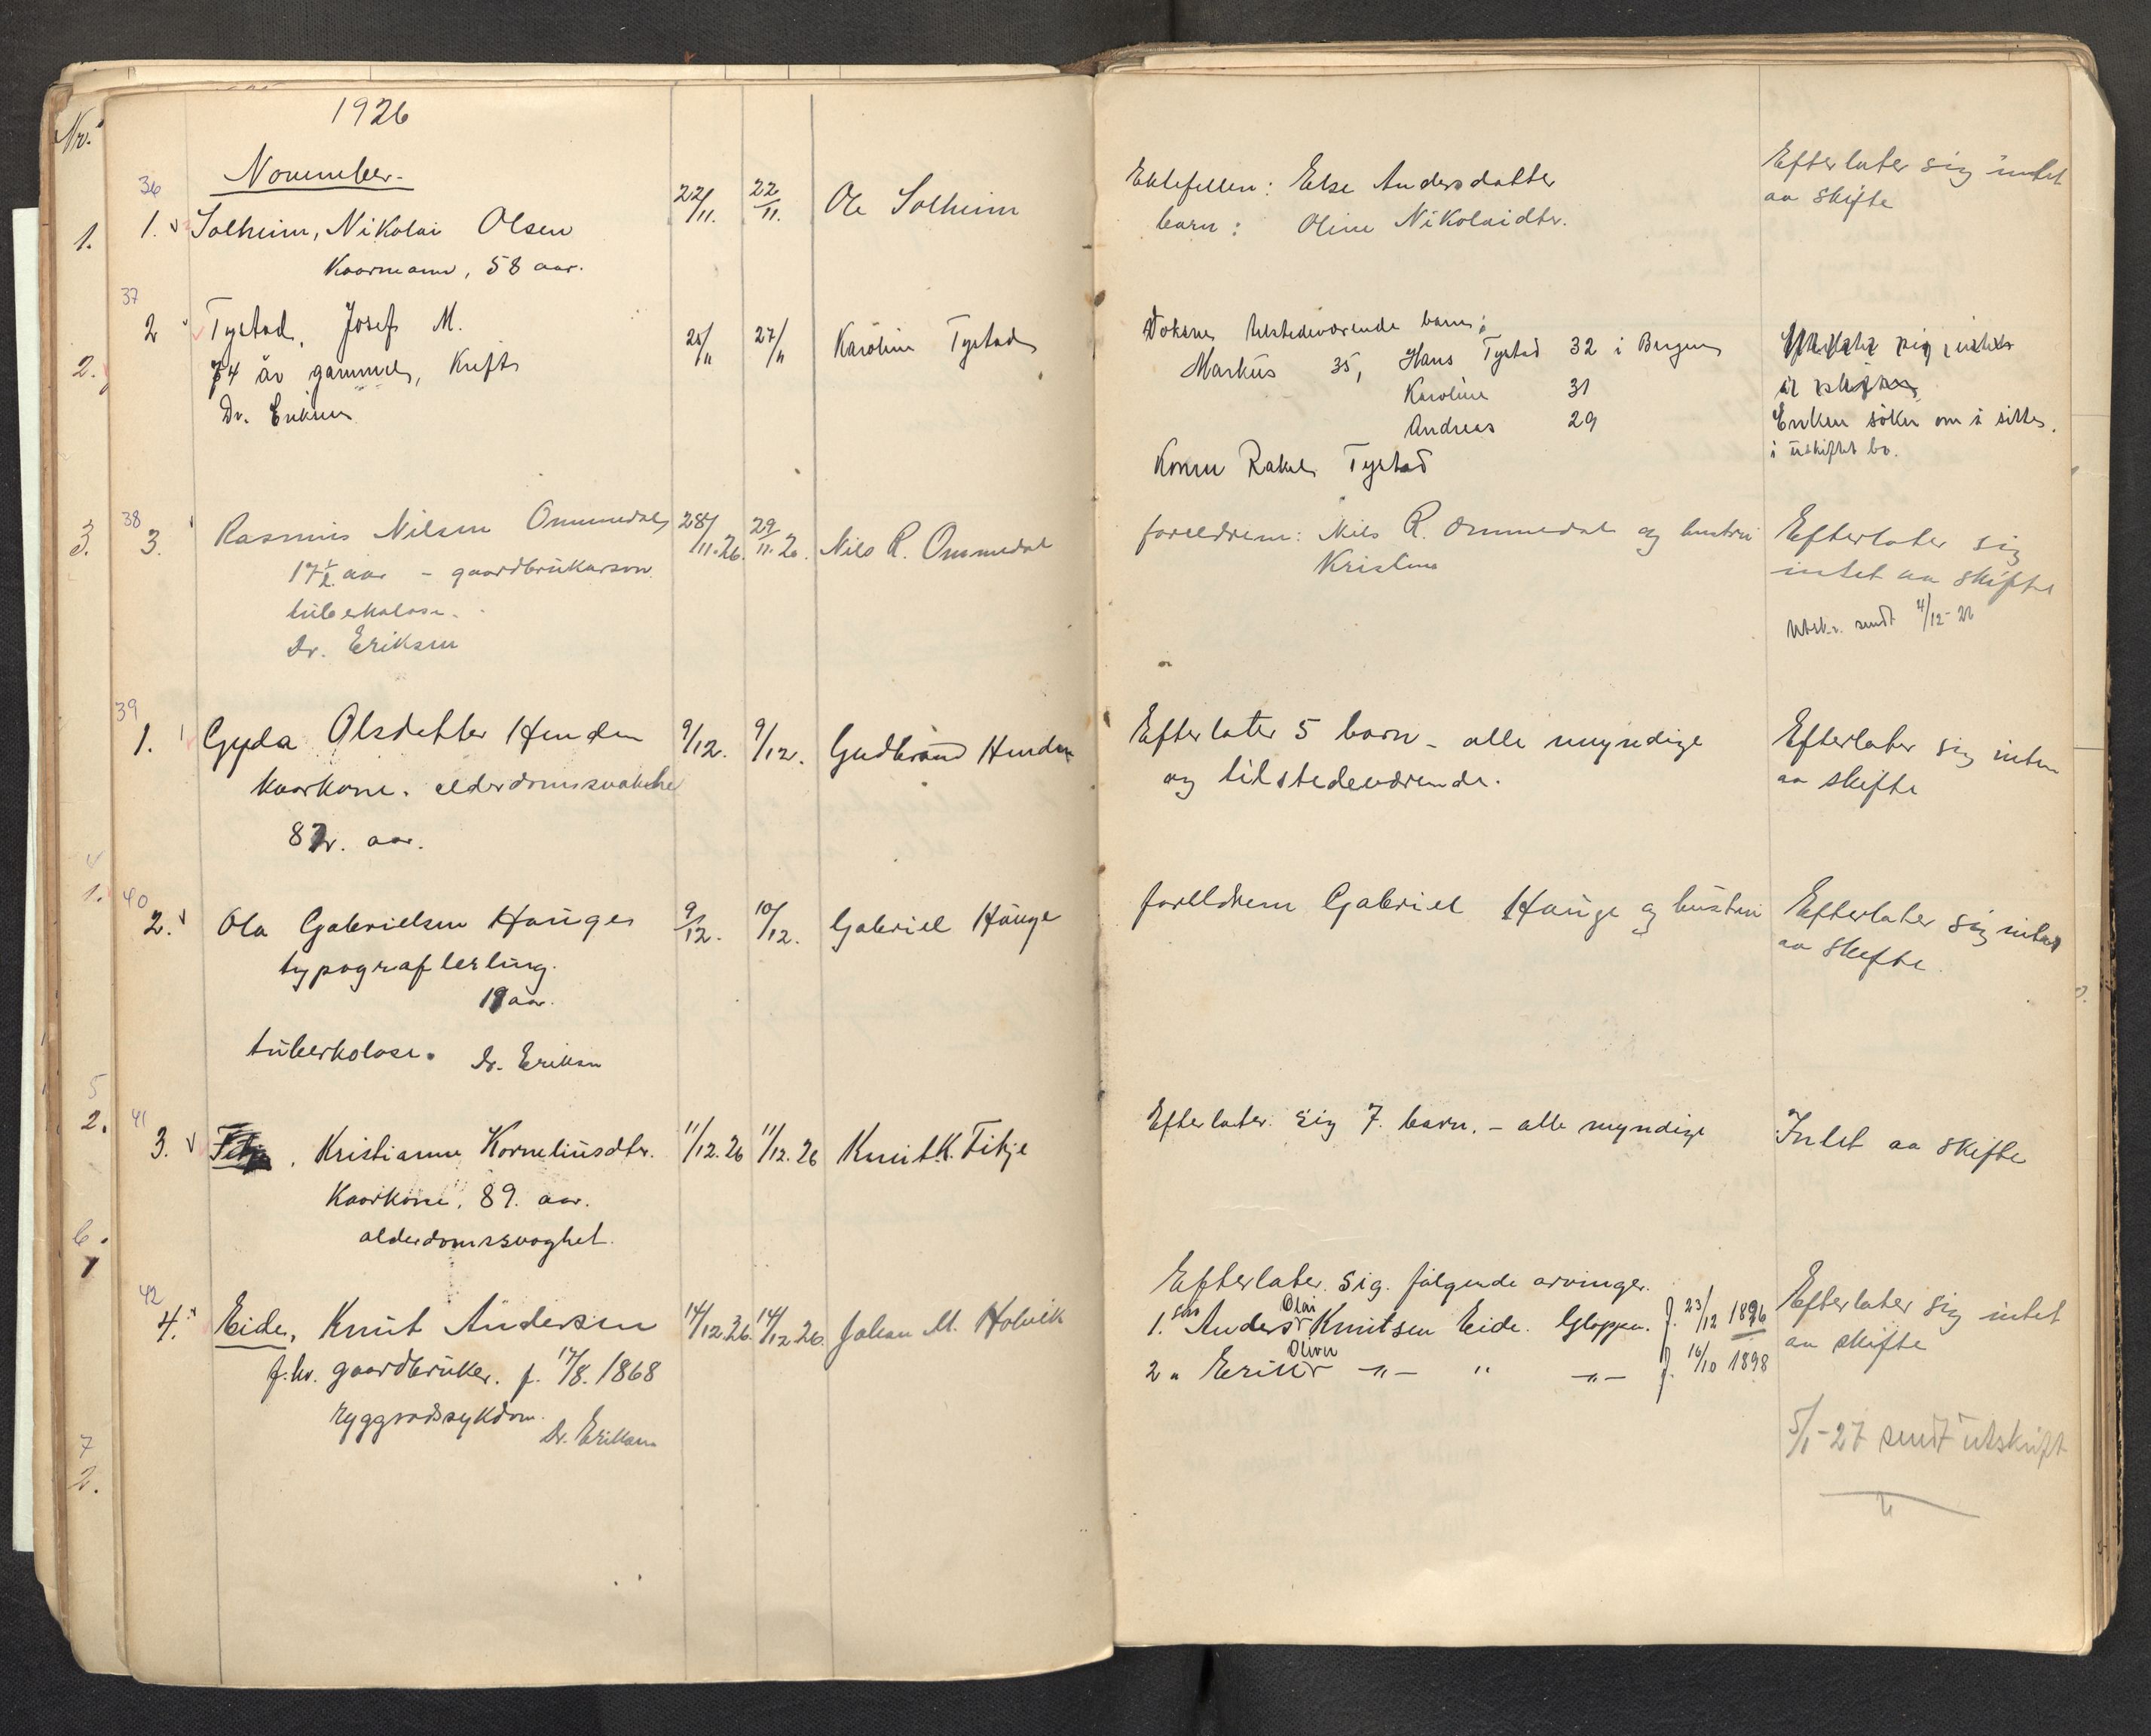 1926
Nr.
November.
36
1. 1. Solheim, Nikolai Olsen 22/11. 22/11. Ole Solheim
Kaarmann, 58 aar.
37
2. 2 Tystad, Josef M. 25/11 27/11 Karoline Tystad
74 år gammel, Kreft
Dr. Eriksen
38
3. 3. Rasmus Nilsen Ommedal 28/11.26. 29/11.26. Nils R. Ommedal
17½ aar - gaardbrukarson.
tuberkolose.
Dr. Eriksen
39
1. Gyda Olsdatter Henden 9/12. 9/12. Gudbrand Henden
kaarkone. alderdomssvakhet
82. aar.
4
1.
40
2. Ola Gabrielsen Hauge 9/12. 10/12. Gabriel Hauge
typograflerling.
19 aar.
tuberkolose. Dr. Eriksen
5
2.
41
3. Kristianne Korneliusdtr. 11/12.26 11/12.26 Knut K. Fitje
Kaarkone, 89. aar.
alderdomssvaghet.
6.
1
42
4. Eide, Knut Andersen 14/12.26. 14/12.26. Johan M. Holvik
f.hv. gaardbruker. f. 17/8. 1868
ryggradssykdom.
Dr. Eriksen
7
2.
Ektefellen: Else Andersdatter
barn: Oline Nikolaidtr.
Efterlater sig intet
aa skifte
Voksne tilstedeværende barn:
Markus 35, Hans Tystad 32 i Bergen
Karoline 31
Andreas 29
Konen Rakel Tystad
Efterlater sig intet
å skifte
Enken søker om å sitte
i uskiftet bo.
foreldrene: Nils R. Ommedal og hustru
Kristine
Efterlater sig
intet aa skifte
Utskr. sendt 4/12-26
Efterlater 5 barn - alle myndige
og tilstedeværende.
Efterlater sig intet
aa skifte
foreldrene Gabriel Hauge og hustru
Efterlater sig intet
aa skifte.
Efterlater sig 7. barn. - alle myndige
Intet aa skifte
Efterlater sig. følgende arvinger.
Olai
1. søn Anders Knutsen Eide. Gloppen. f. 23/12 1896
Oliver
2 " Erik -"- " -"- f. 16/10 1898
Efterlater sig intet
aa skifte
5/1-27 sendt utskrift